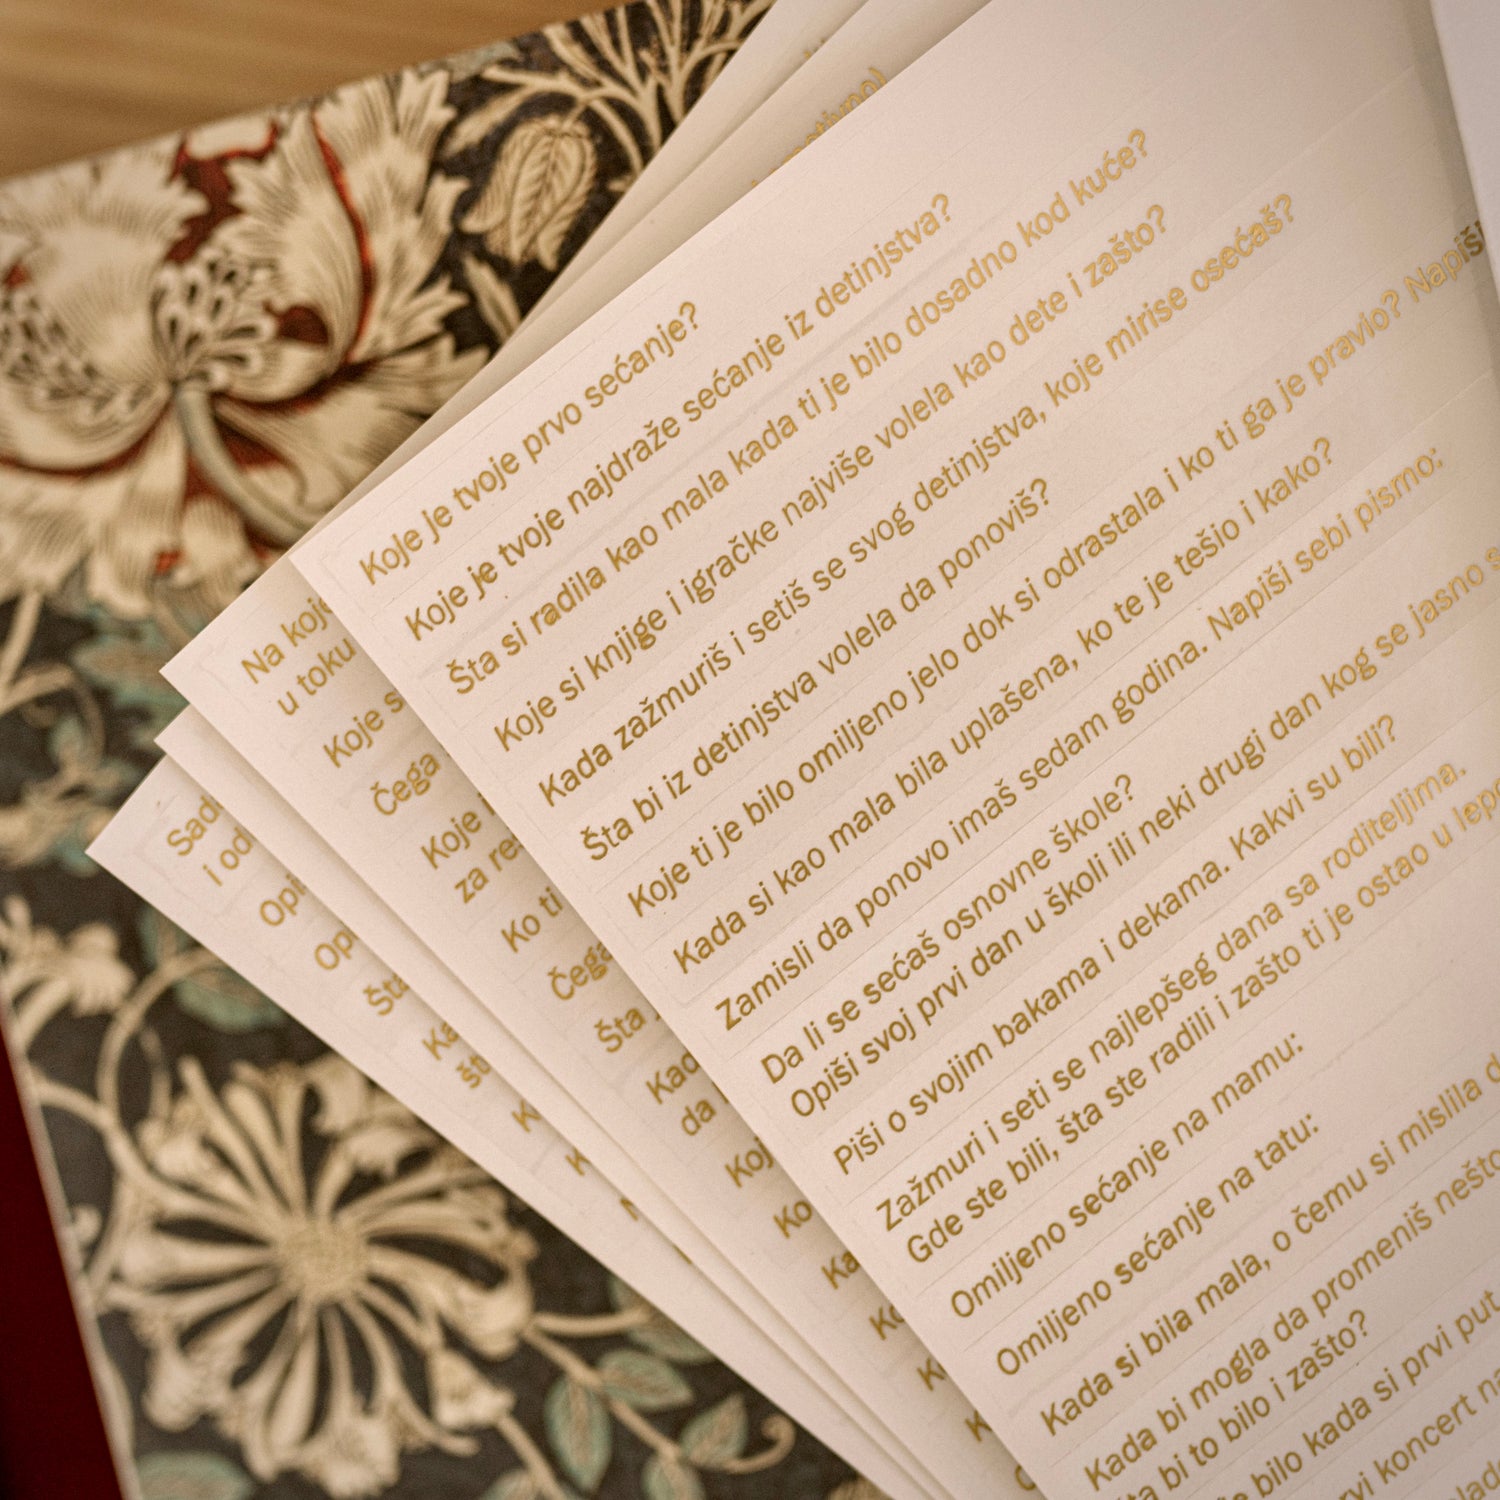 Koje je tvoje prvo sećanje?
Koje je tvoje najdraže sećanje iz detinjstva?
Šta si radila kao mala kada ti je bilo dosadno kod kuće?
Koje si knjige i igračke najviše volela kao dete i zašto?
Kada zažmuriš i setiš se svog detinjstva, koje mirise osećaš?
Šta bi iz detinjstva volela da ponoviš?
Koje ti je bilo omiljeno jelo dok si odrastala i ko ti ga je pravio? Napiši
Kada si kao mala bila uplašena, ko te je tešio i kako?
Zamisli da ponovo imaš sedam godina. Napiši sebi pismo:
Da li se sećaš osnovne škole?
Opiši svoj prvi dan u školi ili neki drugi dan kog se jasno
Piši o svojim bakama i dekama. Kakvi su bili?
Zažmuri i seti se najlepšeg dana sa roditeljima.
Gde ste bili, šta ste radili i zašto ti je ostao u
Omiljeno sećanje na mamu:
Omiljeno sećanje na tatu:
Kada si bila mala, o čemu si mislila
Kada bi mogla da promeniš nešto
bi to bilo i zašto?
bilo kada si prvi put
koncert
Na koje
u toku
Koje
Čega
Koje
za
Ko ti
Čega
Šta
Kad
da
Koj
Ko
Ka
Sad
i od
Opi
Op
Šta
Ka